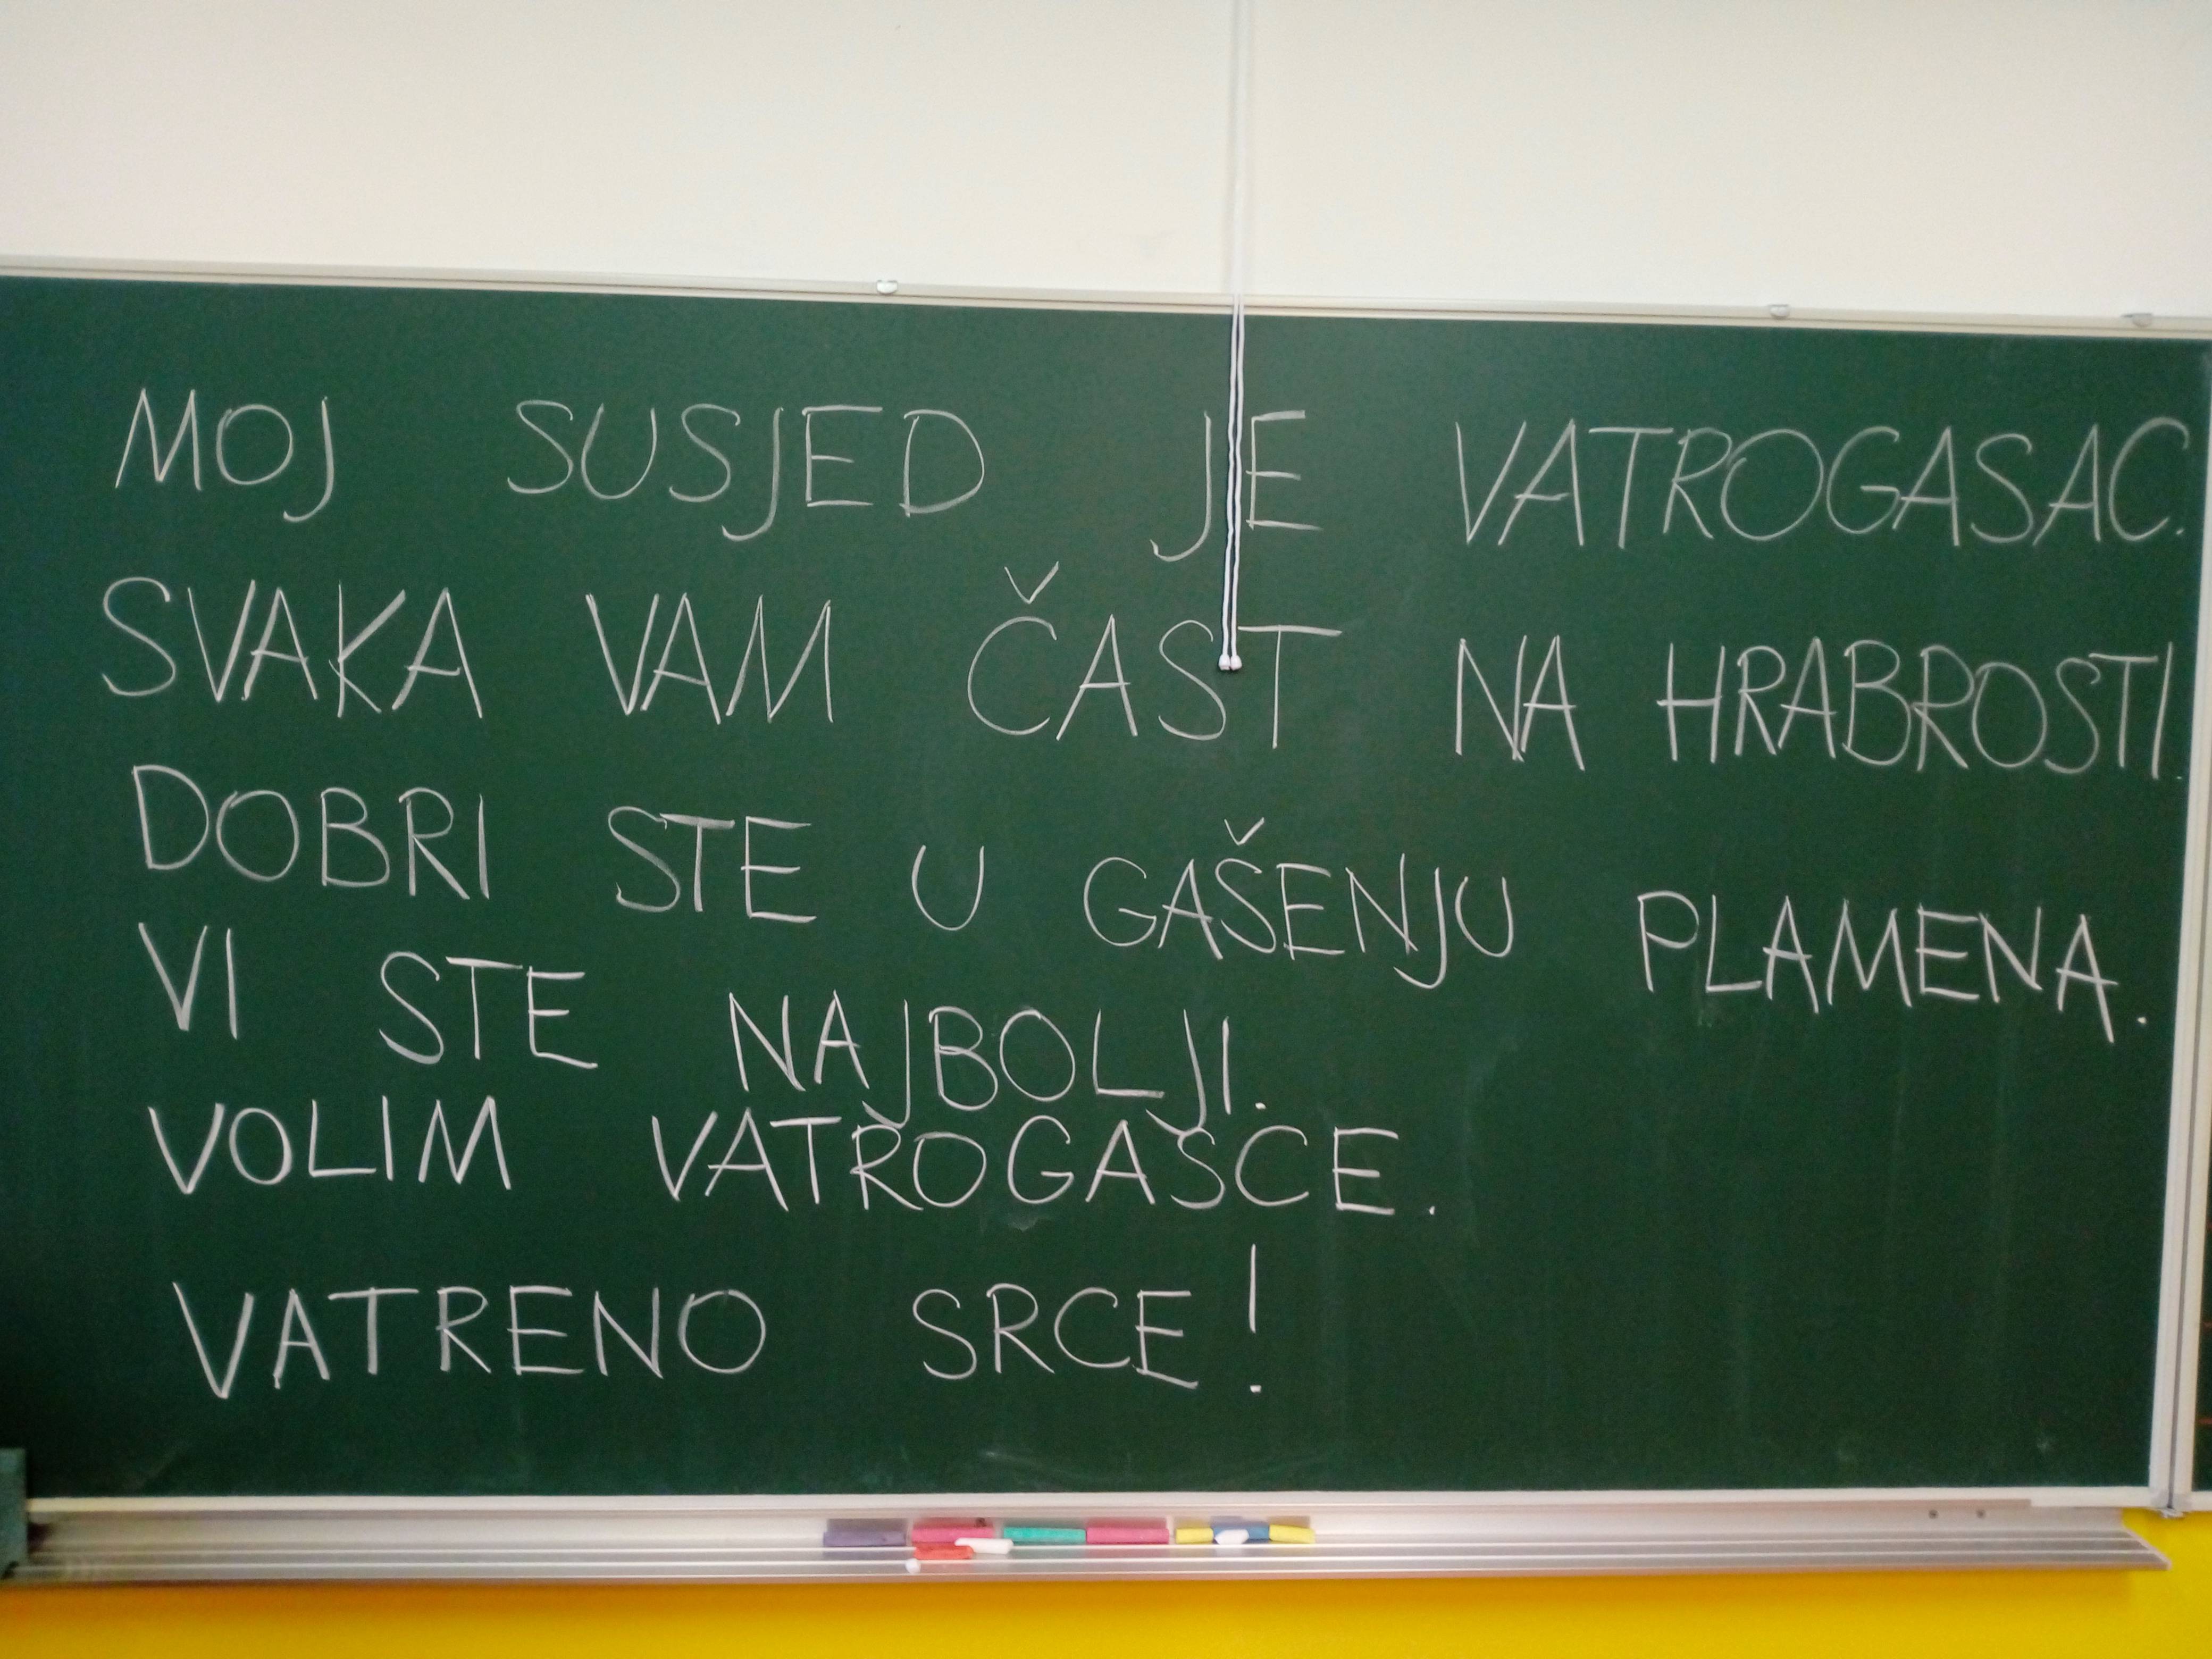 MOJ SUSJED JE VATROGASAC.
SVAKA VAM ČAST NA HRABROSTI.
DOBRI STE U GAŠENJU PLAMENA.
VI STE NAJBOLJI.
VOLIM VATROGASCE.
VATRENO SRCE!